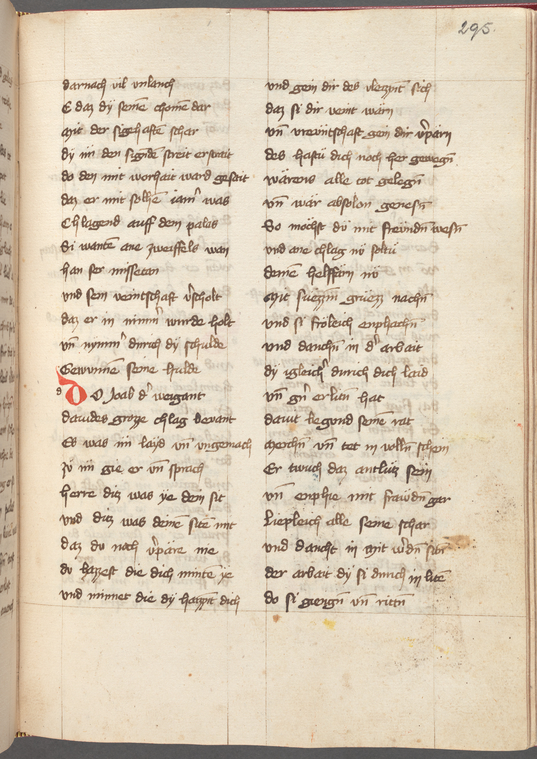 295.
darnach vil vnlanch
E daz dy seine chomen dar
mit der sigehaften schar
dy in den sigunde streit erstrait
do den mit worhait ward geseit
daz er mit solhem iamer was
Chlagend auff dem palas
Si wanten ane zweiffels wan
han ser missetan
vnd sein veintschaft verscholt
daz er in nimmer wurde holt
vnd nymmer durich dy schulde
Gewunnen seine hulde
Do Joab der weigant
dauides groze chlag bevant
Es was im laid vnd vngemach
zu im gie er vnd sprach
herre ditz was ye dein sit
vnd ditz was deine site mit
daz du noch verpare nie
du hazzest die dich minten ye
vnd minnet die dy hazzent dich
vnd gein dir des vleizzent sich
daz si dir veint warn
vnd vreuntschaft gein dir verparn
des hastu dich noch her gewegen
wærens alle tot gelegen
vnd wær absolon genesen
So mochst du mit freunden wesen
vnd ane chlag nu soltu
deinen helffern nu
mit suezzen gruezz nachen
vnd si frölich enphachen
vnd danchen in der arbait
dy igleicher durich dich laid
vnd gen er liten hat
dauit begond seinen rat
merchen vnd tet in willen schein
Er twuch daz antlutz sein
vnd enphie mit frawden gar
Liepleich alle seine schar
vnd dancht in mit werden siten
der arbait dy si durich in liten
do si giengen vnd riten